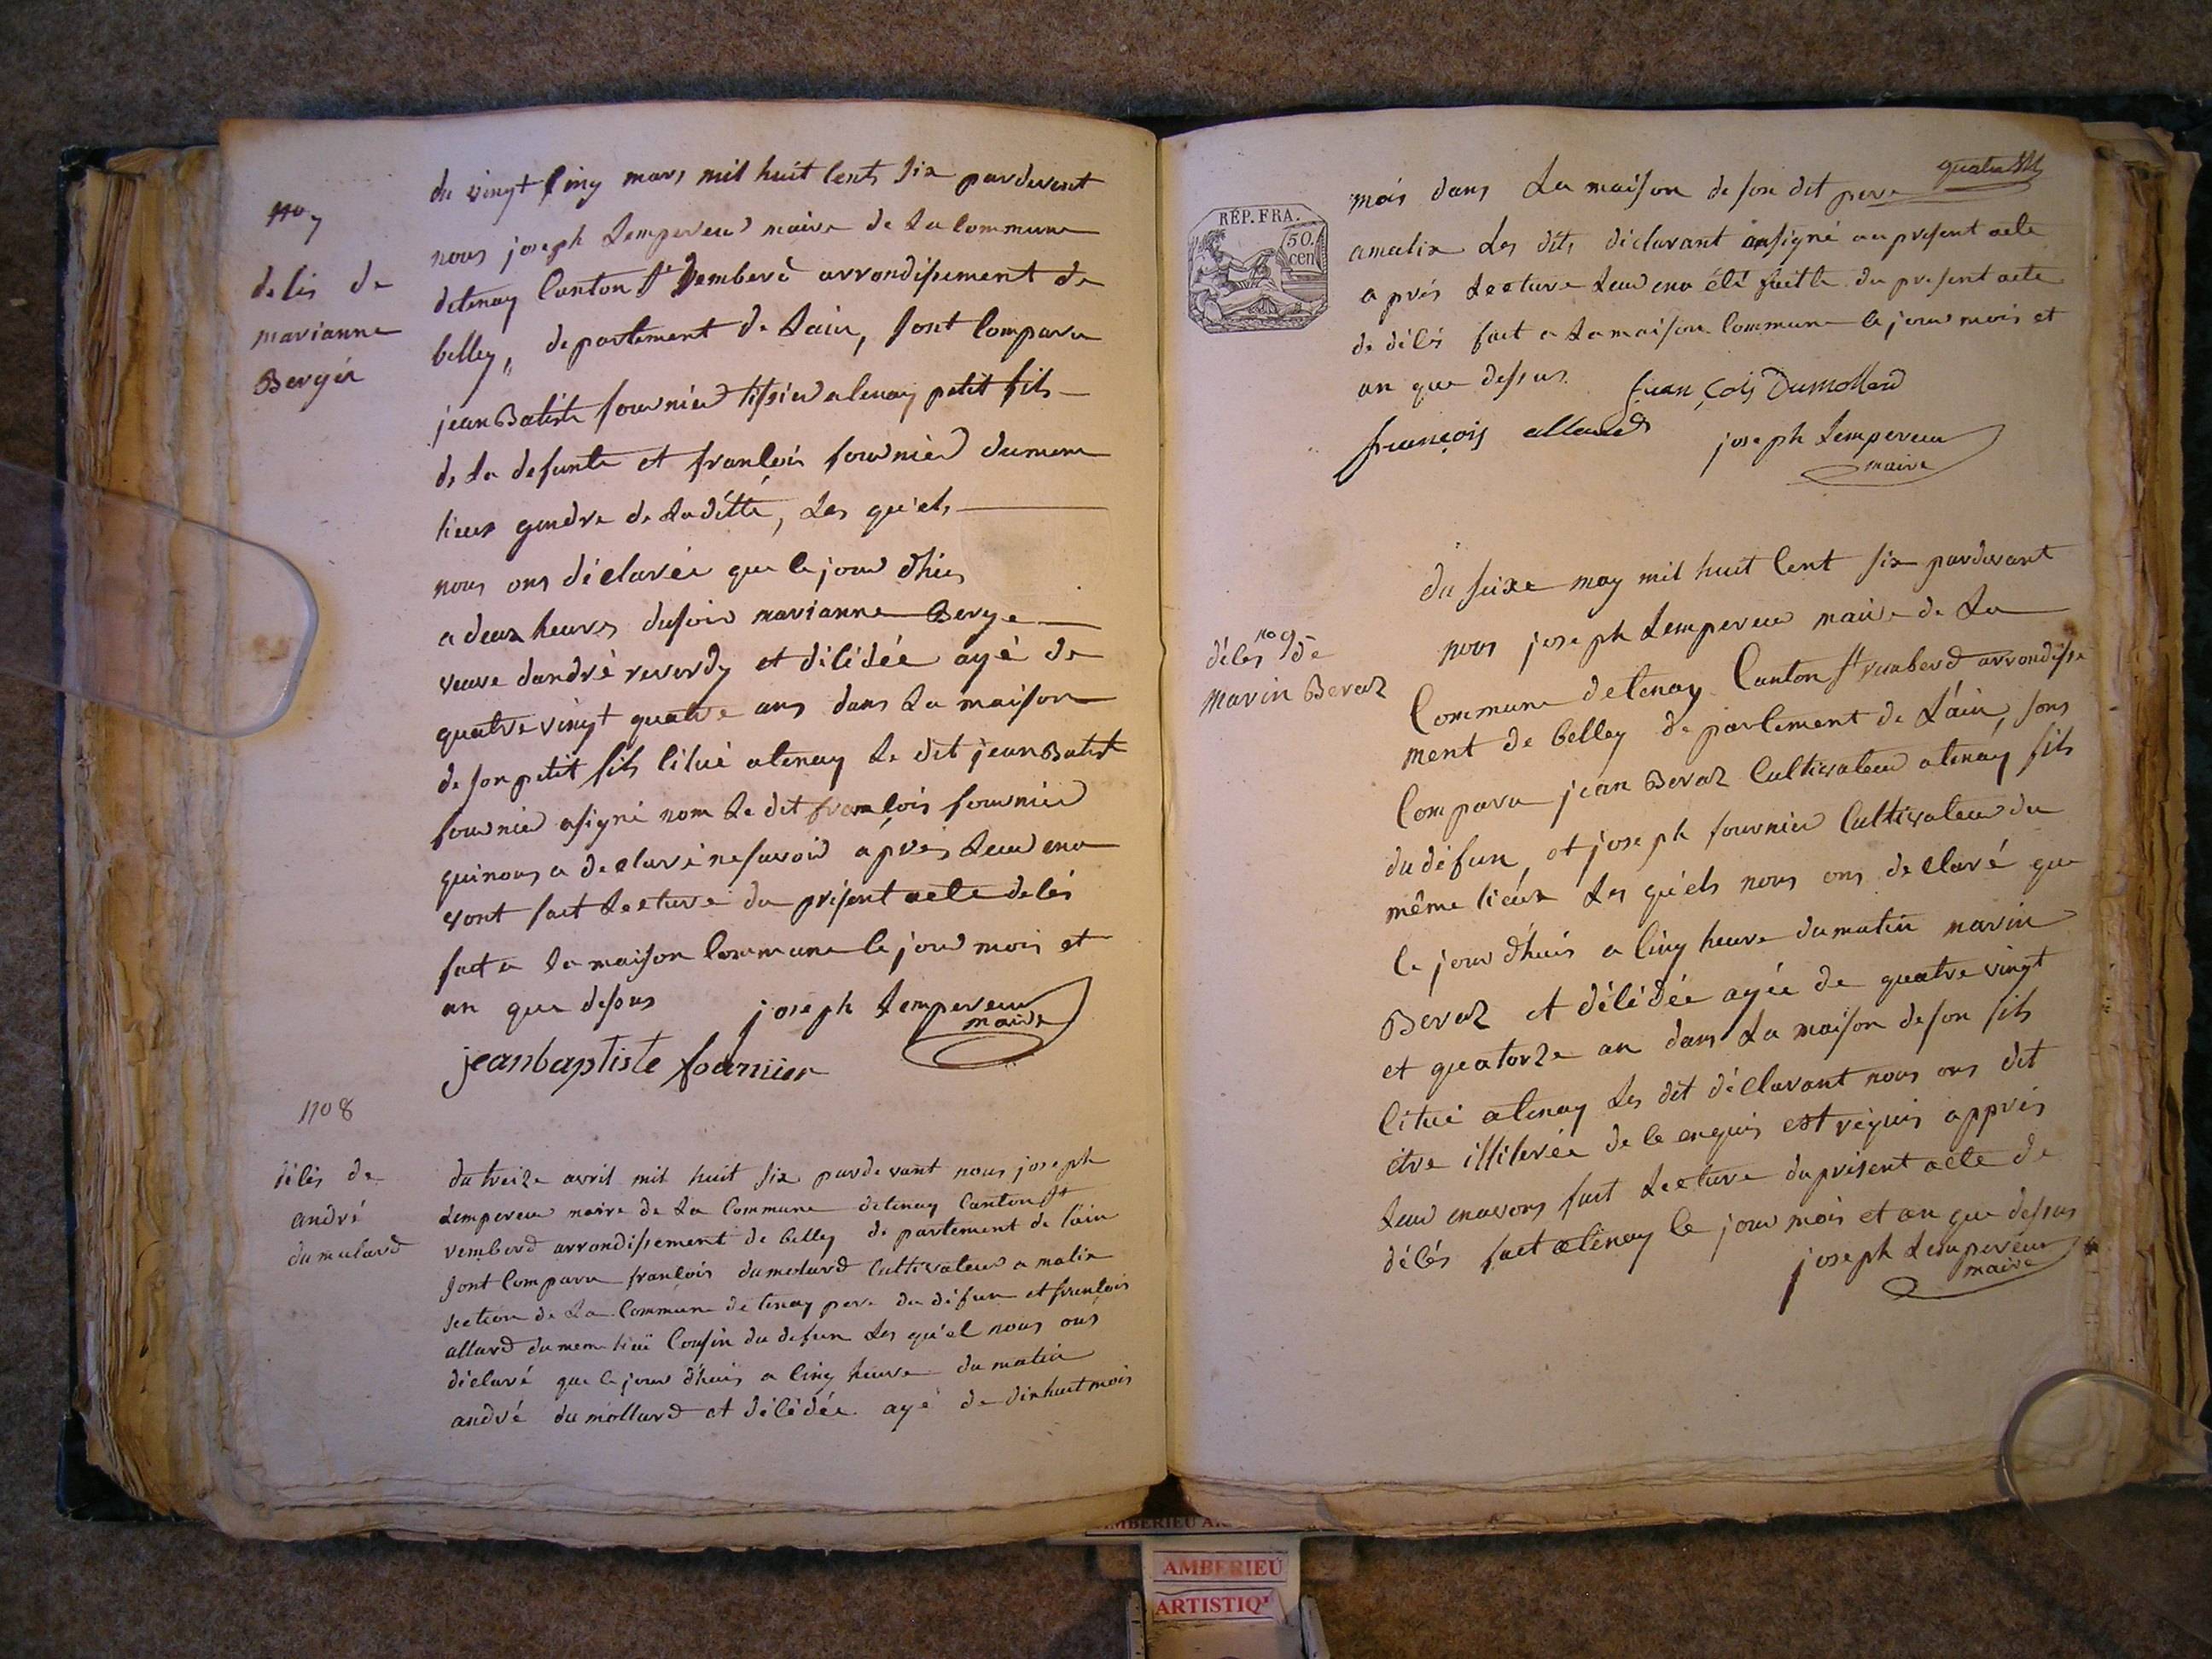 no 7
délés de
marianne
Bergér
du vingt cinq mars mil huit cents six pardevent
nous joseph Lempereur maire de La Commune
detenay Canton St Remberd arrondissement de
belley, departement de Lain, sont comparu
jean Batiste fournier tissier atenay petit fils
de La defunte et françois fournier dumeme
lieux gendre de Laditte, Les qu'els
nous ons déclarée que le jour d'hier
a deux heures dusoir marianne Berge
veuve dandré reverdy et décédée agé de
quatre vingt quatre ans dans La maison
de son petit fils citué atenay Le dit jean Batist
fournier asigné nom Le dit françois fournier
qui nous a declaré nesavoir après Leur ena
vont fait Lecture du présent acte delés
fait a La maison Commune le jour mois et
an que dessus
joseph Lempereur
maire
jeanbaptiste fournier
no 8
délés de
andré
dumulard
du treize avril mil huit six pardevant nous joseph
Lempereur maire de La Commune detenay Canton St
remberd arrondissement de belley departement de l'ain
sont comparu françois dumolard Cultivateur a malix
section de La Commune de tenay pere du défun et françois
allard du meme lieu Cousin du defun Les qu'el nous ons
déclaré que le jour d'huis a cinq heure du matin
andré du mollard et décédée agé de dix huit mois
quatre
RÉP. FRA.
50.
cen
mois dans La maison de son dit pere
amalix Les dits déclarant onsigné au present acte
après Lecture Leur ena été faitte du present acte
de délés fait a La maison Commune le jour mois et
an que dessus
françois Dumollard
françois allard
joseph Lempereur
maire
no 9
délés de
marin Beraz
du seixe may mil huit Cent six pardevant
nous joseph Lempereur maire de La
Commune detenay Canton St remberd arrondisse
ment de belley departement de L'ain, sons
Comparu jean Beraz Cultivateur atenay fils
du défun, et joseph fournier Cultivateur du
même lieux Les qu'els nous ons declaré que
le jour d'huis a cinq heure du matin marin
Beraz et délédée agée de quatre vingt
et quatorze an dans La maison de son fils
Citué atenay Les dit déclarant nous ons dit
être illiterée de ce enquis est réquis appres
Leur enavons fait Lecture du présent acte de
délés fait atenay le jour mois et an que dessus
joseph Lempereur
maire
AMBERIEU
AMBERIEU
ARTISTIQ'